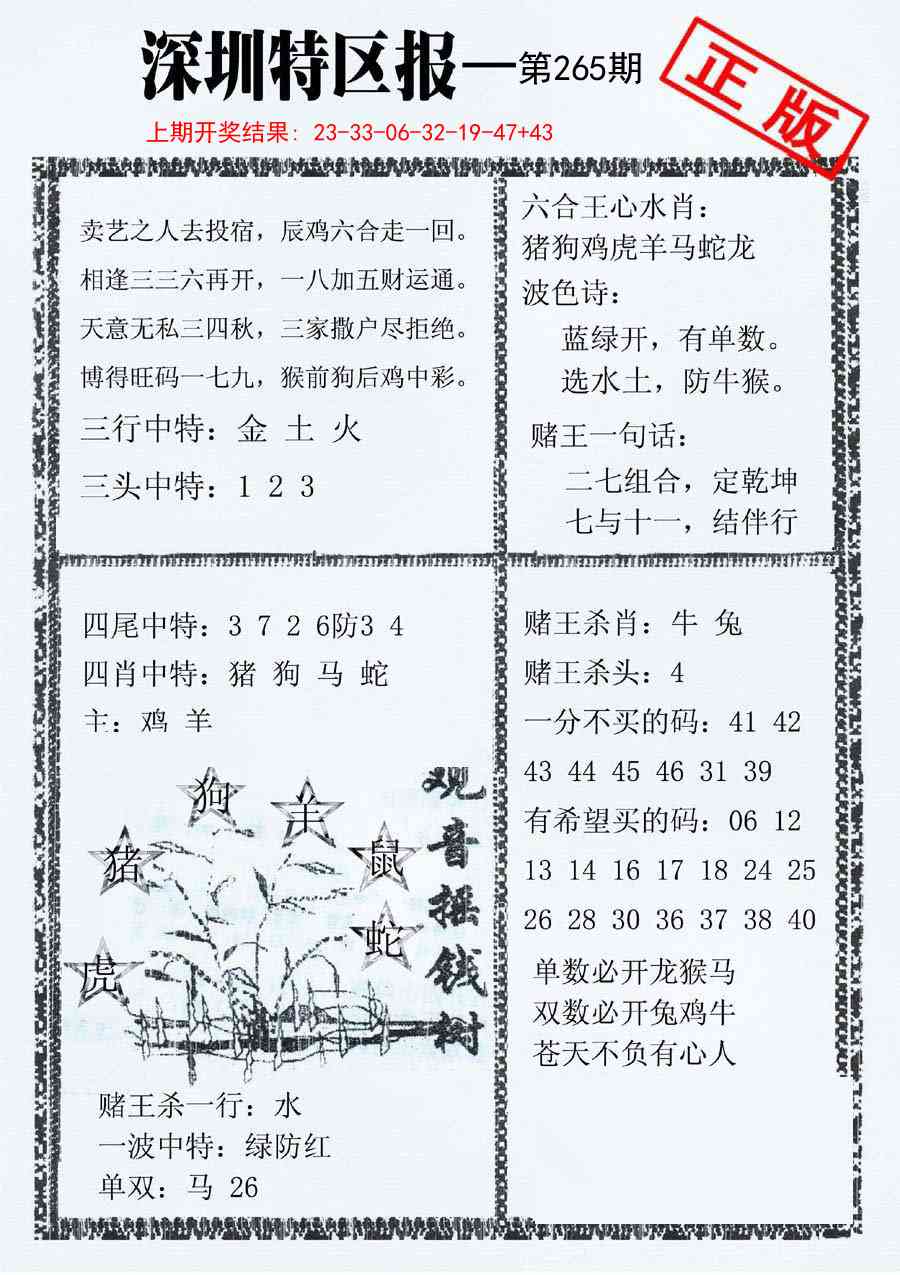 深圳特区报—第265期
正版
上期开奖结果: 23-33-06-32-19-47+43
卖艺之人去投宿，辰鸡六合走一回。
相逢三三六再开，一八加五财运通。
天意无私三四秋，三家撒户尽拒绝。
博得旺码一七九，猴前狗后鸡中彩。
三行中特：金 土 火
三头中特：1 2 3
六合王心水肖：
猪狗鸡虎羊马蛇龙
波色诗：
蓝绿开，有单数。
选水土，防牛猴。
赌王一句话：
二七组合，定乾坤
七与十一，结伴行
四尾中特：3 7 2 6防3 4
四肖中特：猪 狗 马 蛇
主：鸡 羊
狗
羊
猪
鼠
蛇
虎
观音摇钱树
赌王杀一行：水
一波中特：绿防红
单双：马 26
赌王杀肖：牛 兔
赌王杀头：4
一分不买的码：41 42
43 44 45 46 31 39
有希望买的码：06 12
13 14 16 17 18 24 25
26 28 30 36 37 38 40
单数必开龙猴马
双数必开兔鸡牛
苍天不负有心人